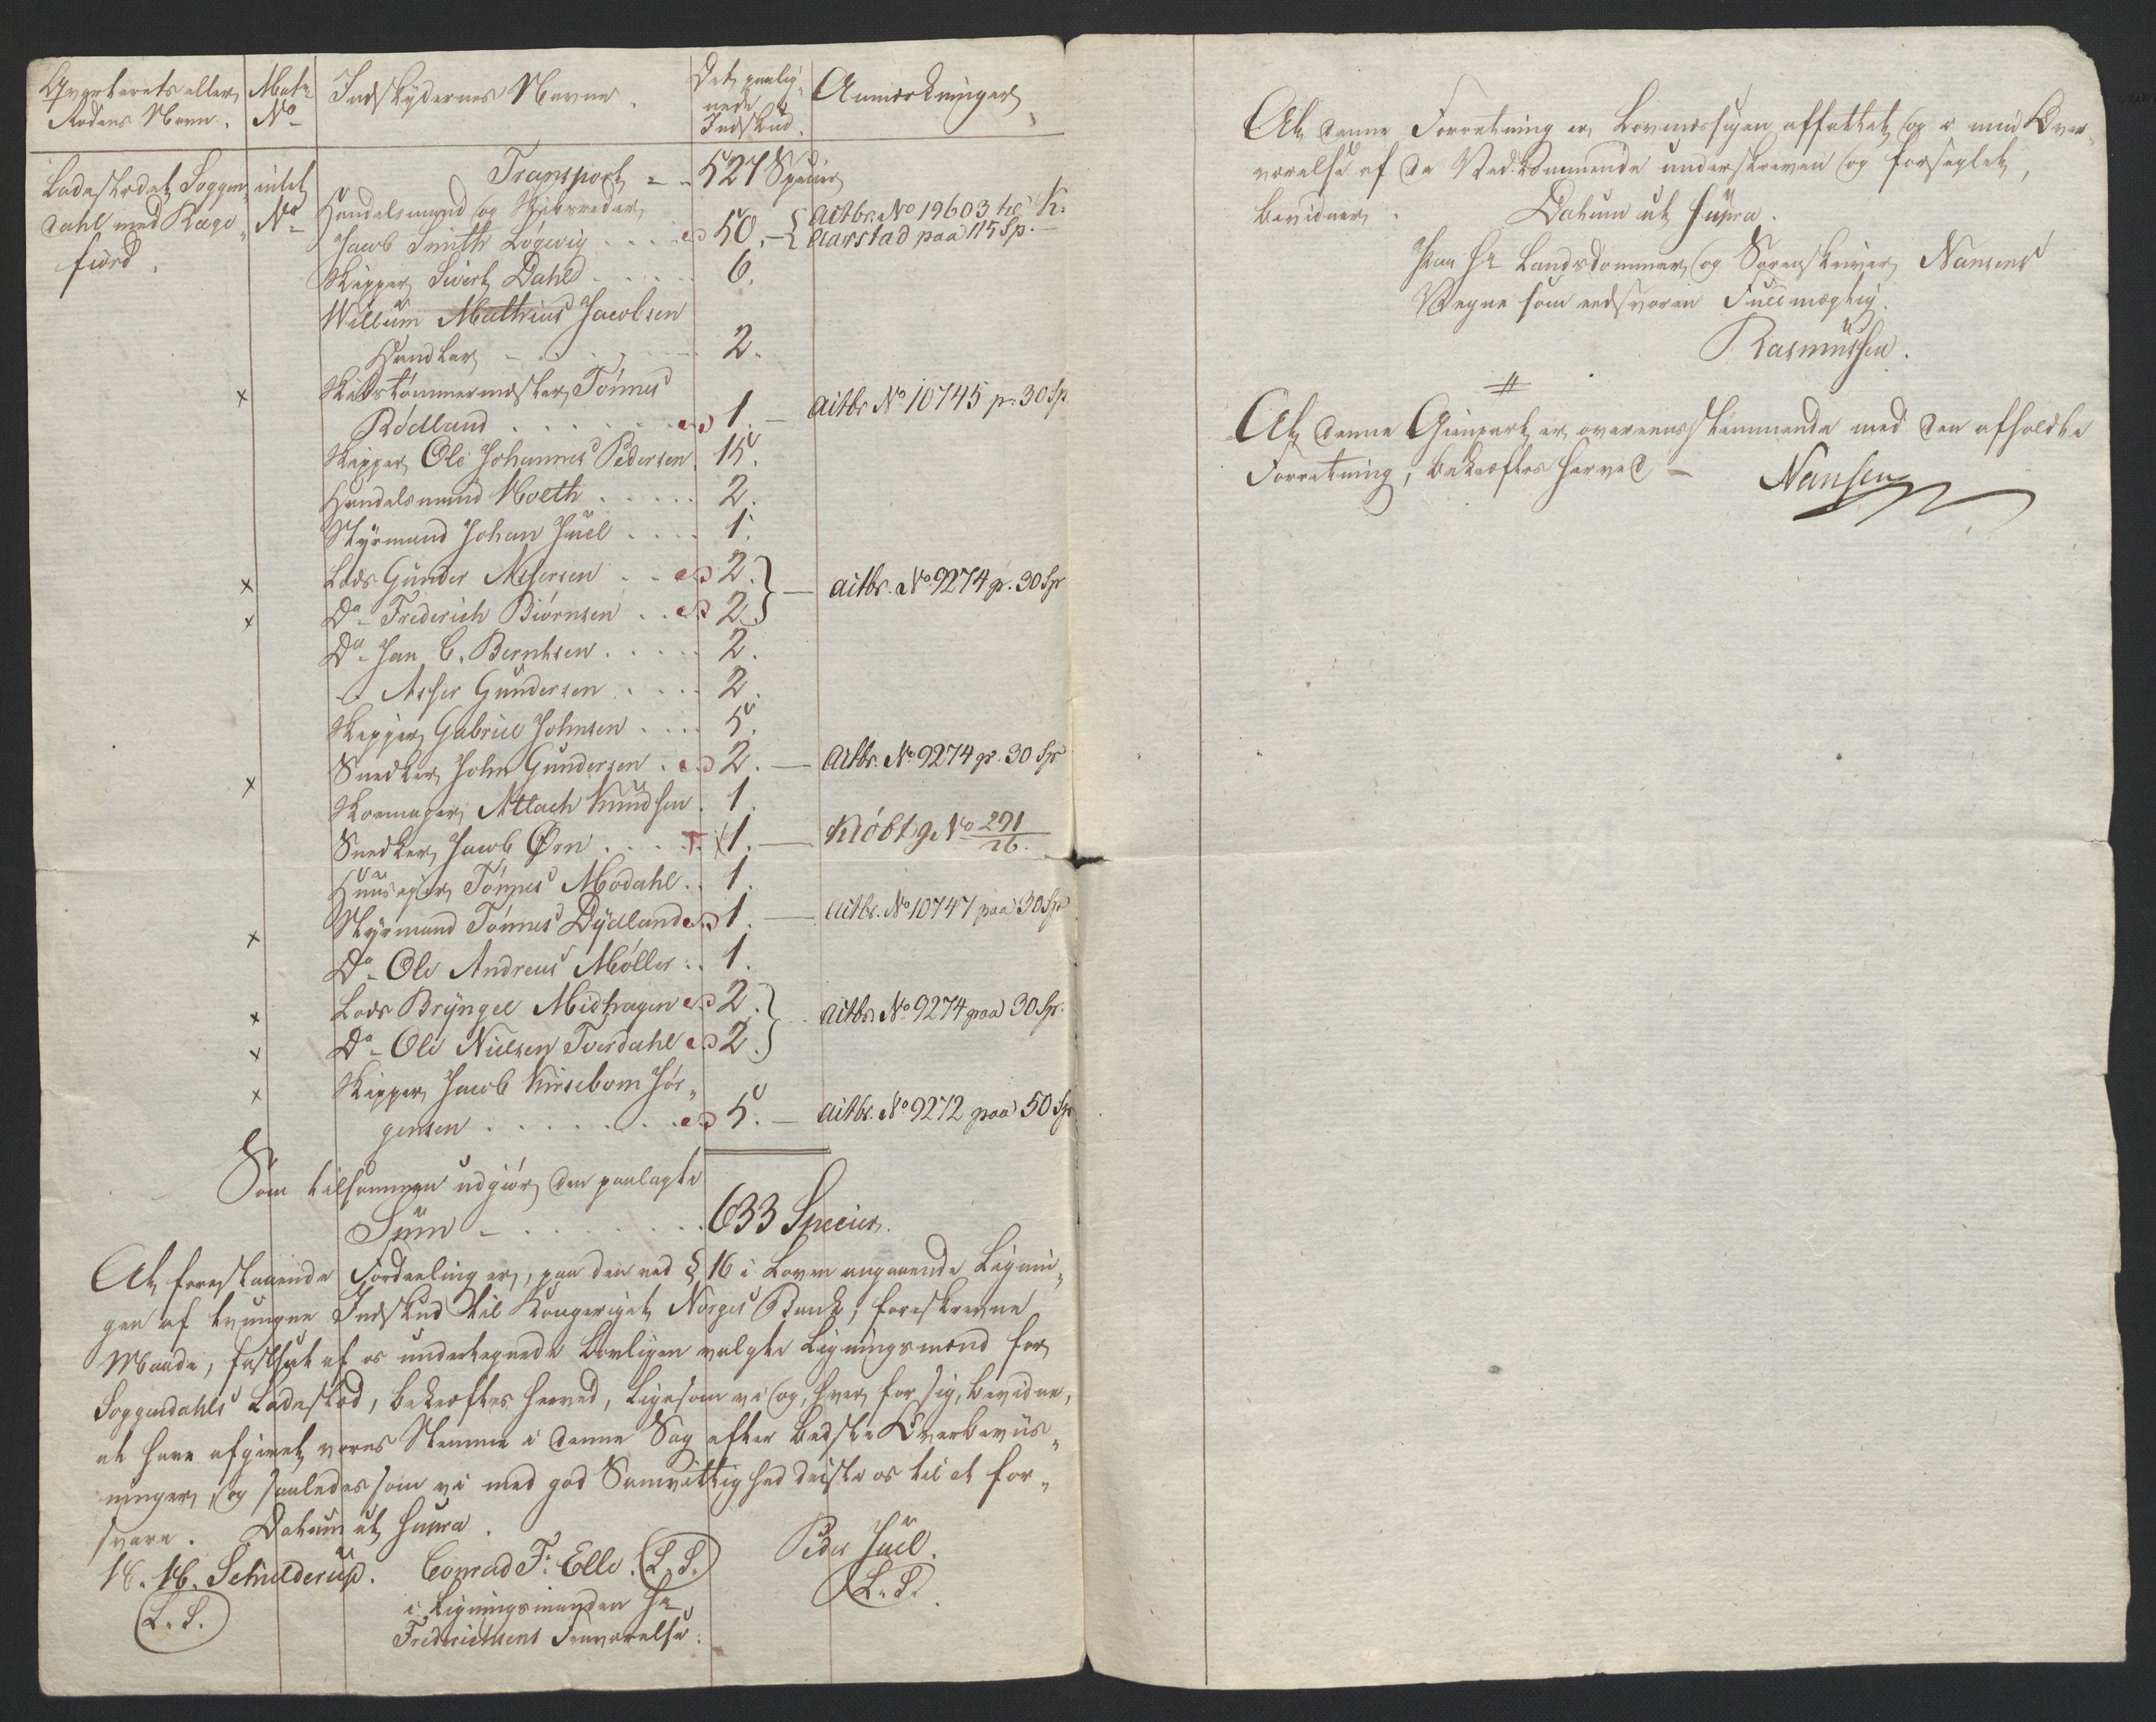 Qvarterets eller
Rodens Navn.
Matr
No
Indskydernes Navne.
Det paalig-
nede
Indskud.
Anmærkninger
Ladestædet Soggen-
dahl med Ræge-
fiord.
intet
No
Transport - - 527 Specier
Handelsmand og Skibsreder
Jacob Smith Løgevig . . . 50. - { Actbr. No 19603 til K.
Aarstad paa 115 Sp. -
Skipper Sivert Dahl . . . . . 6.
Willum Mathias Jacobsen
Handler - . . . . - 2.
x Skibstømmermester Tønnes
Rødland . . . . . . . 1. - Actbr No 10745 p. 30 Sp
Skipper Ole Johannes Pedersen. 15.
Handelsmand Moeth . . . . . 2.
Styrmand Johan Juel . . . . 1.
x Lods Gunder Assersen . . 2. } - actbr. No 9274 p. 30 Sp
x Do - Friderich Biørnsen . . 2.
Do - Jan C. Berntsen . . . . . 2.
- Asser Gundersen . . . . 2.
Skipper Gabriel Johnsen . . . . 5.
x Snedker John Gundersen . . 2. - Actbr. No 9274 p. 30 Sp
Skomager Atlach Knudsen . 1.
Snedker Jacob Ørn . . . . 1. - Kiøbt g No 271/26.
Huuseier Tønnes Modahl . . 1.
x Styrmand Tønnes Dydland 1. - Actbr. No 10747 paa 30 Sp
Do - Ole Andreas Møller . . 1.
x Lods Bryngel Midhagen 2. } - Actbr No 9274 paa 30 Sp.
x Do - Ole Nielsen Tverdahl 2.
x Skipper Jacob Kirsebom Jør-
gensen . . . . . . . 5. - Actbr. No 9272 paa 50 Sp
Som tilsammen udgiør den paalagte
Sum - . . . . . . 633 Specier.
At forestaaende Fordeeling er, paa den ved § 16 i Loven angaaende Lignin-
gen af tvungne Indskud til Kongeriget Norges Bank, foreskrevne
Maade, fastsat af os undertegnede lovligen valgte Ligningsmænd for
Soggendahls Ladestæd, bekræftes herved, ligesom vi og, hver for sig, bevidne,
at have afgivet vores Stemme i denne Sag efter bedste Overbeviis-
ninger, og saaledes som vi med god Samvittighed driste os til at for-
svare. Datum ut supra.
Schielderup. Conrad F. Elle. (L.S.) Peder Juel.
(L.S.) i Ligningsmanden Hr (L.S.)
Frederichsens Fraværelse.
At denne Forretning er lovmæssigen affattet og i min Over-
værelse af de Vedkommende underskreven og forseglet,
bevidner. Datum ut supra.
Paa Hr Landsdommer og Sorenskriver Nansens
Vegne som eedsvoren Fuldmægtig.
Rasmussen.
#
At denne Gienpart er overeensstemmende med den afholdte
Forretning, bekræftes herved - Nansen